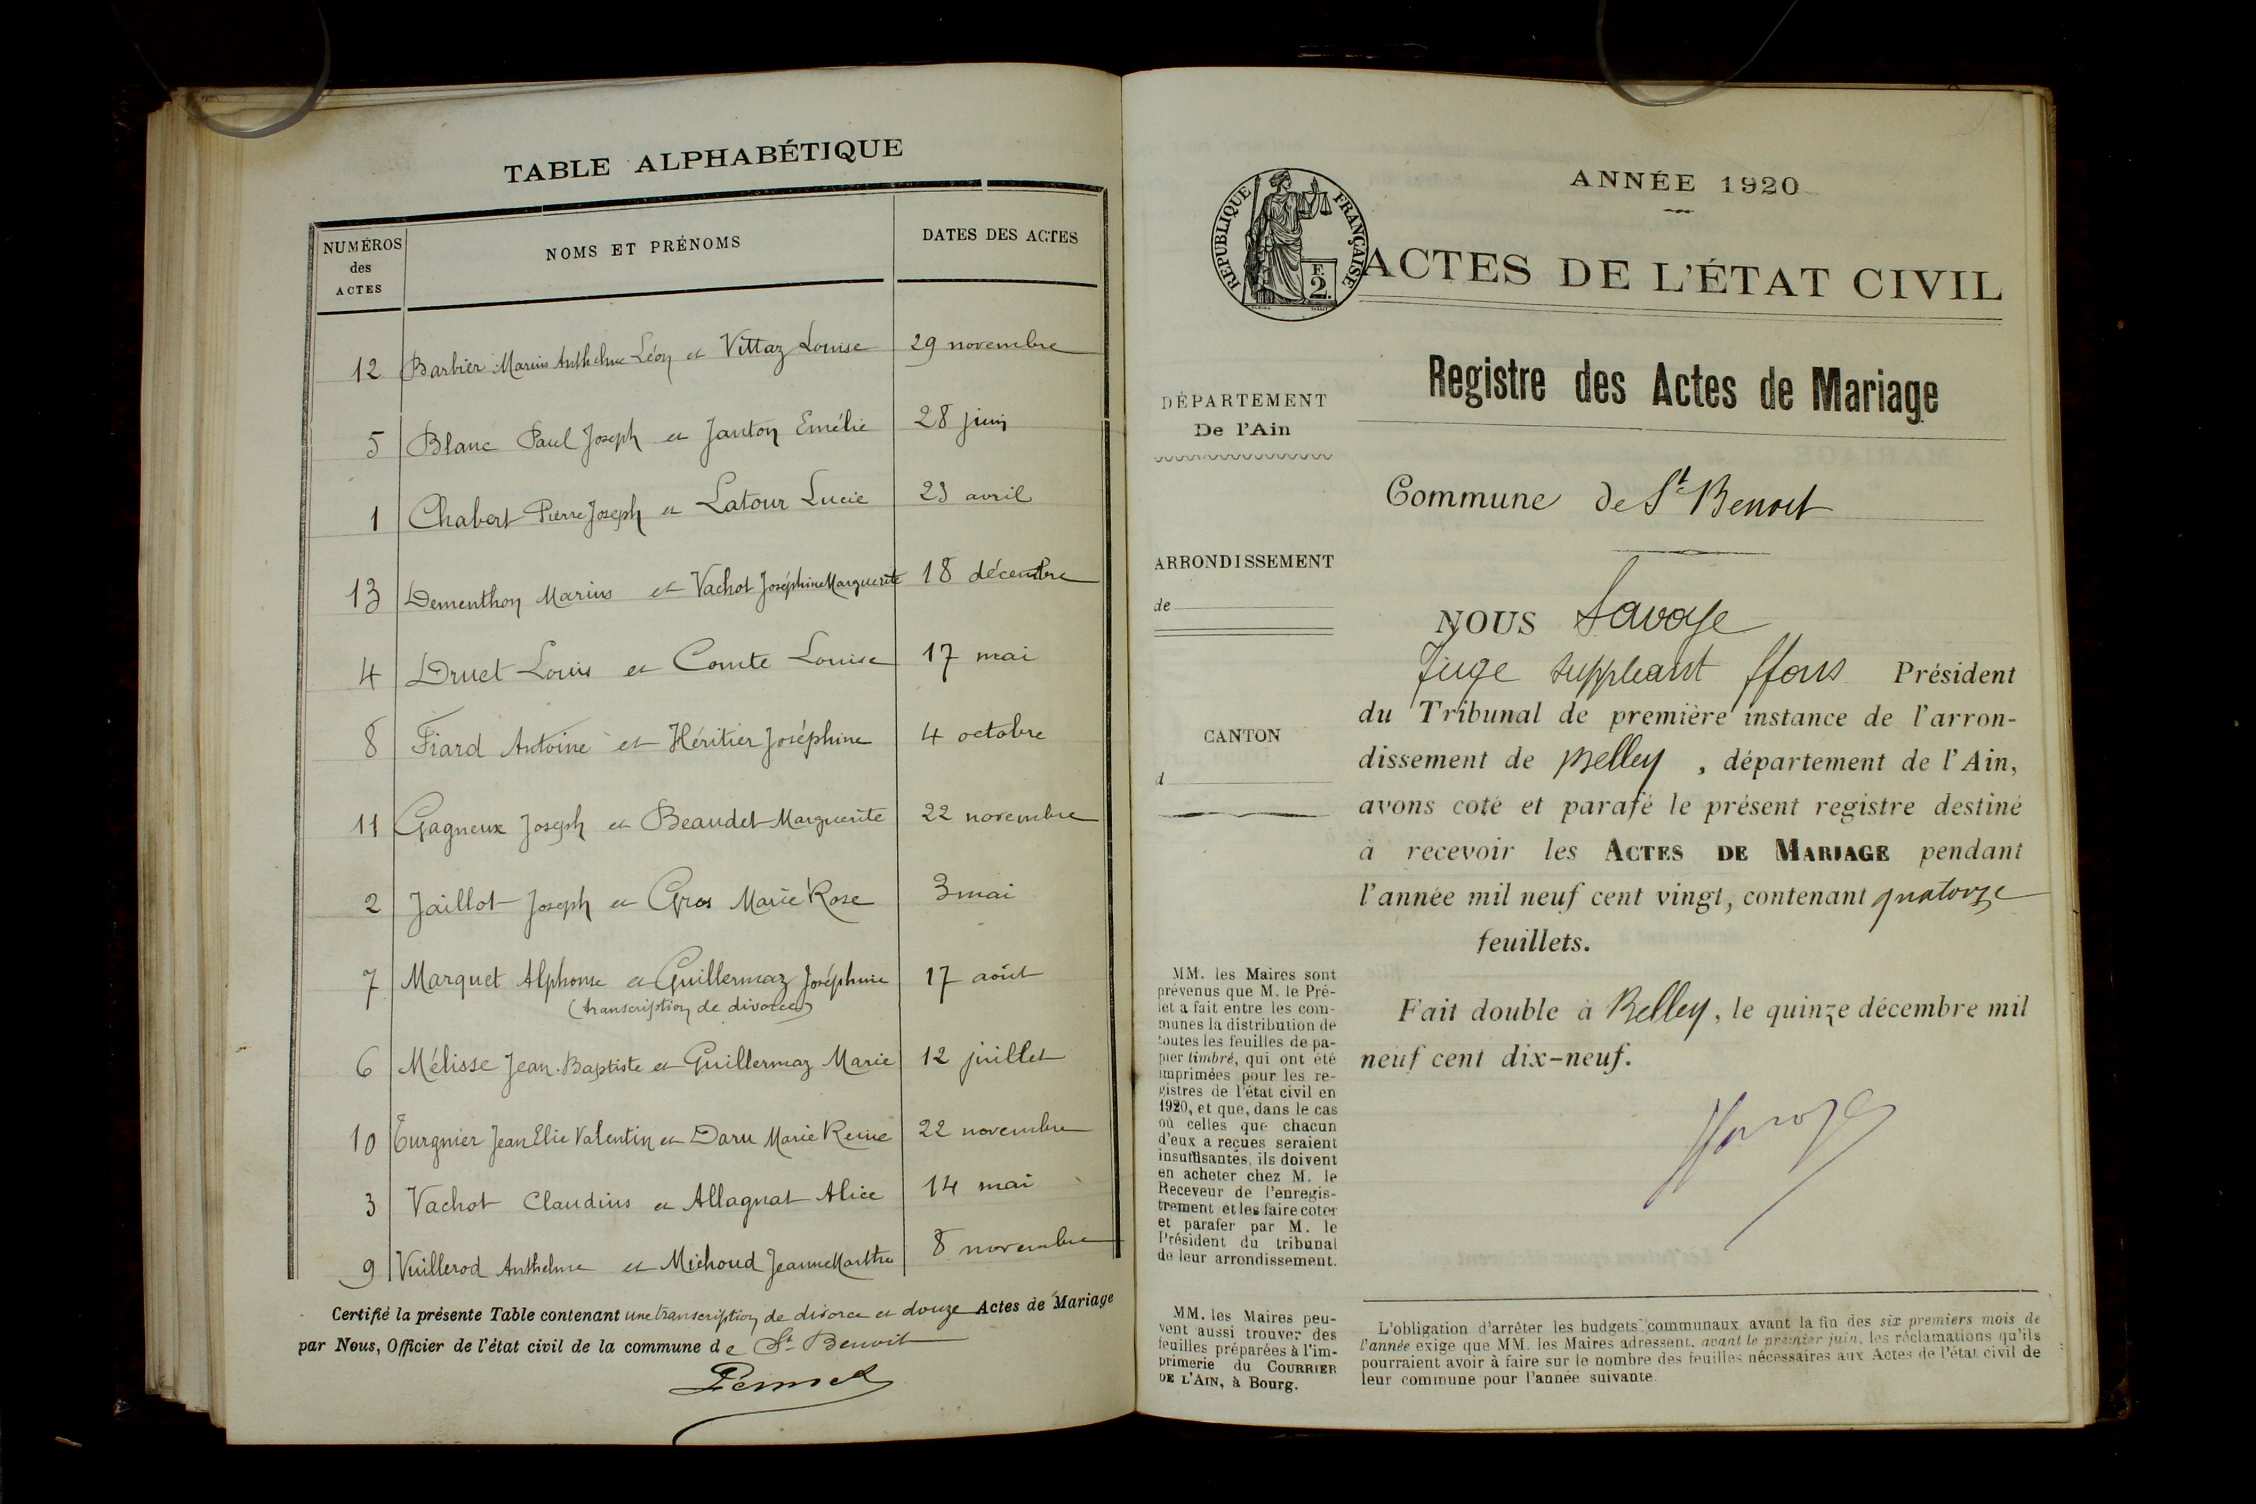 TABLE ALPHABÉTIQUE
NUMÉROS
des
ACTES
NOMS ET PRÉNOMS
DATES DES ACTES
12 Barbier Marius Anthelme Léon et Vittaz Louise 29 novembre
5 Blanc Paul Joseph et Janton Emélie 28 juin
1 Chabert Pierre Joseph et Latour Lucie 23 avril
13 Dementhon Marius et Vachot Joséphine Marguerite 18 décembre
4 Druet Louis et Comte Louise 17 mai
8 Fiard Antoine et Héritier Joséphine 4 octobre
11 Gagneux Joseph et Beaudet Marguerite 22 novembre
2 Jaillot Joseph et Gros Marie Rose 3 mai
7 Marquet Alphonse et Guillermaz Joséphine 17 août
(transcription de divorce)
6 Mélisse Jean-Baptiste et Guillermaz Marie 12 juillet
10 Turgnier Jean Elie Valentin et Daru Marie Reine 22 novembre
3 Vachot Claudius et Allagnat Alice 14 mai
9 Vuillerod Anthelme et Michoud Jeanne Marthe 8 novembre
Certifié la présente Table contenant une transcription de divorce et douze Actes de Mariage
par Nous, Officier de l'état civil de la commune de St Benoit
ANNÉE 1920
RÉPUBLIQUE FRANÇAISE
F.
2
ACTES DE L'ÉTAT CIVIL
Registre des Actes de Mariage
DÉPARTEMENT
De l'Ain
Commune de St Benoit
ARRONDISSEMENT
de
CANTON
d
NOUS Savoye
Juge suppléant ffons Président
du Tribunal de première instance de l'arron-
dissement de Belley, département de l'Ain,
avons coté et parafé le présent registre destiné
à recevoir les ACTES DE MARIAGE pendant
l'année mil neuf cent vingt, contenant quatorze
feuillets.
Fait double à Belley, le quinze décembre mil
neuf cent dix-neuf.
Savoye
MM. les Maires sont
prévenus que M. le Pré-
fet a fait entre les com-
munes la distribution de
toutes les feuilles de pa-
pier timbré, qui ont été
imprimées pour les re-
gistres de l'état civil en
1920, et que, dans le cas
où celles que chacun
d'eux a reçues seraient
insuffisantes, ils doivent
en acheter chez M. le
Receveur de l'enregis-
trement et les faire coter
et parafer par M. le
Président du tribunal
de leur arrondissement.
MM. les Maires peu-
vent aussi trouver des
feuilles préparées à l'im-
primerie du COURRIER
DE L'AIN, à Bourg.
L'obligation d'arrêter les budgets communaux avant la fin des six premiers mois de
l'année exige que MM. les Maires adressent, avant le premier juin, les réclamations qu'ils
pourraient avoir à faire sur le nombre des feuilles nécessaires aux Actes de l'état civil de
leur commune pour l'année suivante.